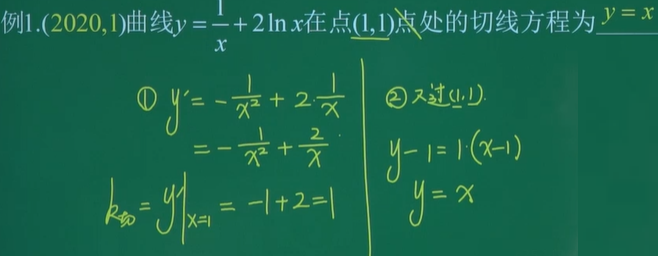 例1.(2020,1)曲线y=1/x+2ln x在点(1,1)点处的切线方程为 y=x
① y′=-1/x²+2·1/x
=-1/x²+2/x
k切=y′|x=1=-1+2=1
② 又过(1,1).
y-1=1·(x-1)
y=x